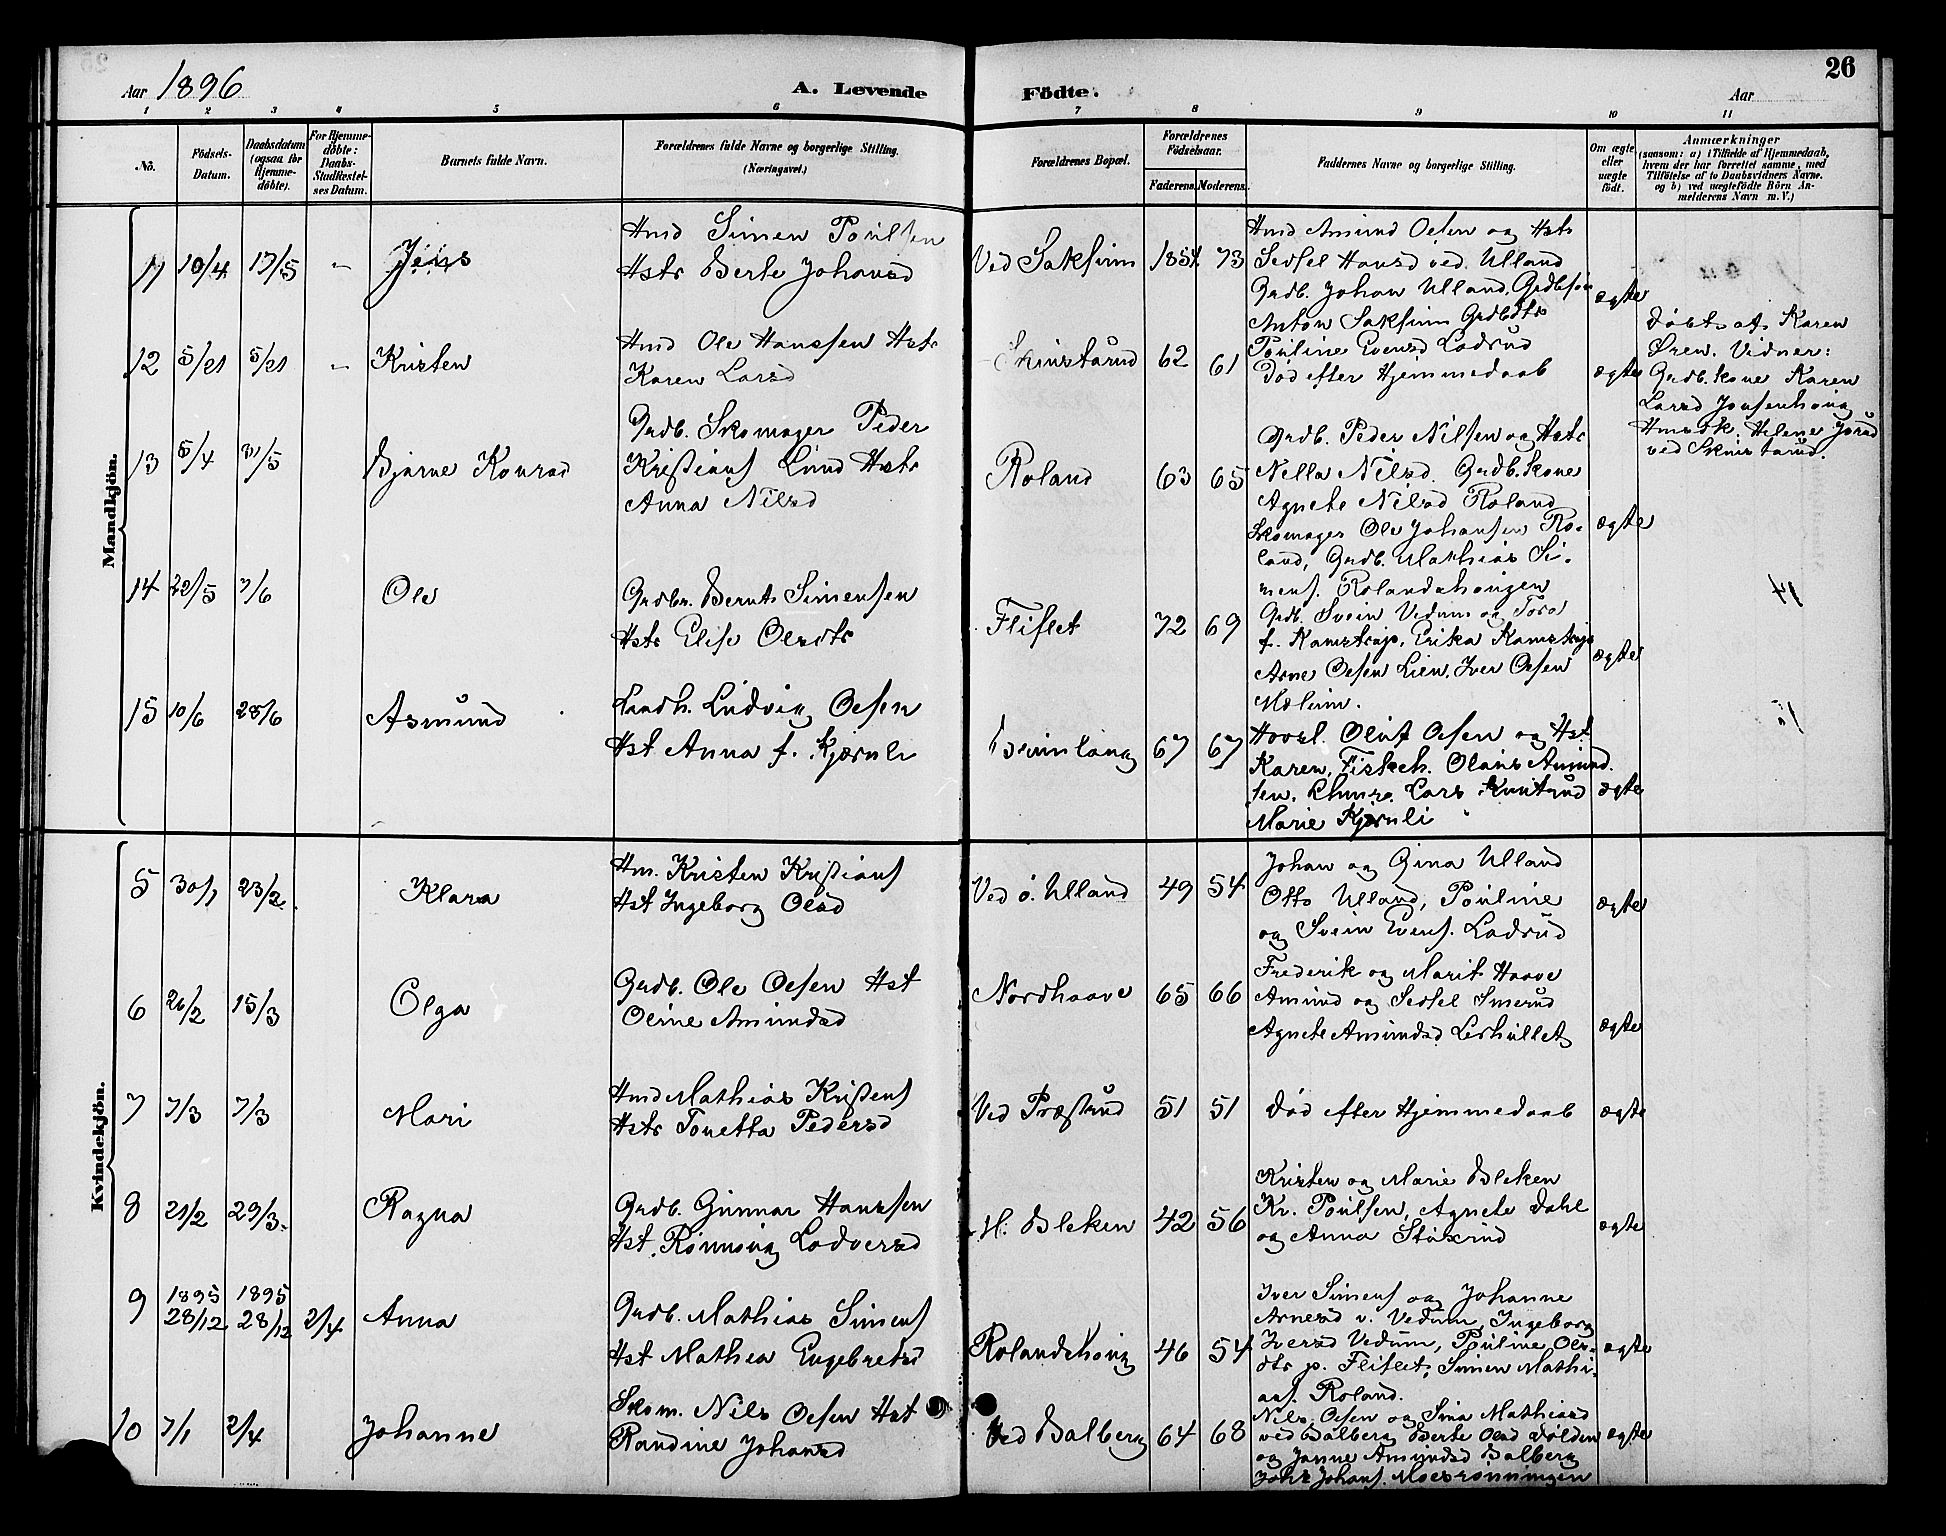 26
Aar 1896 A. Levende Födte. Aar
1 2 3 4 5 6 7 8 9 10 11
No. Födsels-Datum. Daabsdatum (ogsaa for Hjemme-döbte). For Hjemme-döbte: Daabs-Stadfæstel-ses Datum. Barnets fulde Navn. Forældrenes fulde Navne og borgerlige Stilling. (Næringsvei.) Forældrenes Bopæl. Forældrenes Födselsaar. Faderens. Moderens. Faddernes Navne og borgerlige Stilling. Om ægte eller uægte födt. Anmærkninger (saasom: a) i Tilfælde af Hjemmedaab, hvem der har forrettet samme, med Tilföielse af to Daabsvidners Navne. og b) ved uægtefödte Börn An-melderens Navn m. V.)
Mandkjön.
11 10/4 17/5 - Jens
Hmd Simen Poulsen
Hstr Berte Johansd
Ved Saksum 1854 73
Hmd Amund Olsen og Hstr
Sedsel Hansd ved. Ulland
Grdb. Johan Ulland, Grdbsøn
Anton Saksum Grdbdtr
Pouline Evensd Lodrud
ægte
12 5/21 5/21 - Kristen
Hmd Ole Hanssen Hstr
Karen Larsd
Skinstarud 62 61
Død efter Hjemmedaab
ægte
Døbt af Karen
Øren. Vidner:
Grdb. kone Karen
Larsd Jonsenhoug
Hmdsk. Helene
ved Skinstarud.
13 5/4 31/5 Bjarne Konrad
Grdb. Skomager Peder
Kristians Lund Hstr
Anna Nilsd
Roland 63 65
Grdb. Peder Nilsen og Hstr
Nella Nilsd. Grdb. kone
Agnete Nilsd Roland
Skomager Ole Johansen Ro-
land, Grdb. Mathias Si-
mens. Rolandshougen
ægte
14 22/5 7/6 Ole
Grdbr. Bernt Simensen
Hstr Elise Olsdtr
Fliflet 72 69
Grdb. Svein Vedum og Tora
f. Kamstrup, Erika Kamstrup
Arne Olsen Lien, Iver Olsen
Mælum.
ægte
14
15 10/6 28/6 Asmund
Landh. Ludvig Olsen
Hst Anna f. Kjærnli
67 67
Olaf Olsen og Hst
Karen, Olaus Amund-
sen, Lars
Marie Kjærnli
ægte
15
Kvindekjön.
5 30/1 23/2 Klara
Hm. Kristen Kristians
Hst Ingeborg Olsd
Ved ö. Ulland 49 54
Johan og Gina Ulland
Otto Ulland, Pouline
og Svein Evens. Lodrud
ægte
6 26/2 15/3 Olga
Grdb. Ole Olsen Hst
Oline Amundsd
Nordhaave 65 66
Frederik og Marit Haave
Amund og Sedsel Smerud
Agnete Amundsd Lerhullet
ægte
7 7/3 7/3 Mari
Hmd Mathias Kristens
Hstr Tonetta Pedersd
Ved Præstrud 51 51
Död efter Hjemmedaab
ægte
8 21/2 29/3 Ragna
Grdb. Gunnar Hanssen
Hst. Rönnoug Lodversd
M. Bleken 42 56
Kristen og Marie Bleken
Kr. Poulsen, Agnete Dahl
og Anna
ægte
9 1895 28/12 1895 28/12 2/4 Anna
Grdb. Mathias Simens
Hst Mathea Engebretsd
Rolandshoug 46 54
Iver Simens og Johanne
Arnesd v. Vedum, Ingeborg
Iversd Vedum, Pouline Ols-
dtr p. Fliflet, Simen Mathi-
ass. Roland.
ægte
10 7/1 2/4 Johanne
Skom. Nils Olsen Hst
Randine Johansd
Ved Balberg 64 68
Nils Olsen og Sina Mathiasd
ved Balberg Berte Olsd Dölden
og Janne Amundsd Balberg
Johs Johans. Moesrönningen
ægte